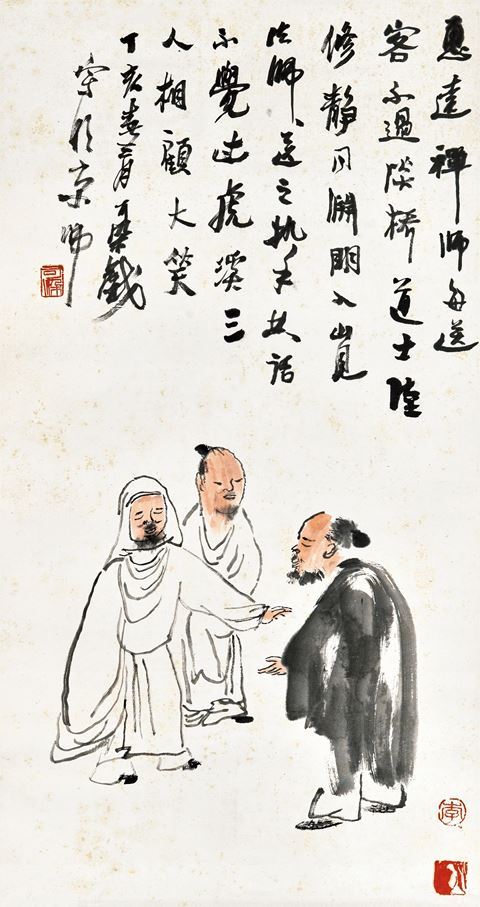 惠遠禪師每送
客不過溪橋道士陸
修靜同淵明入山見
法師送之執手共話
不覺过虎溪三
人相顧大笑
丁亥春月可染戲
寫於京師
李